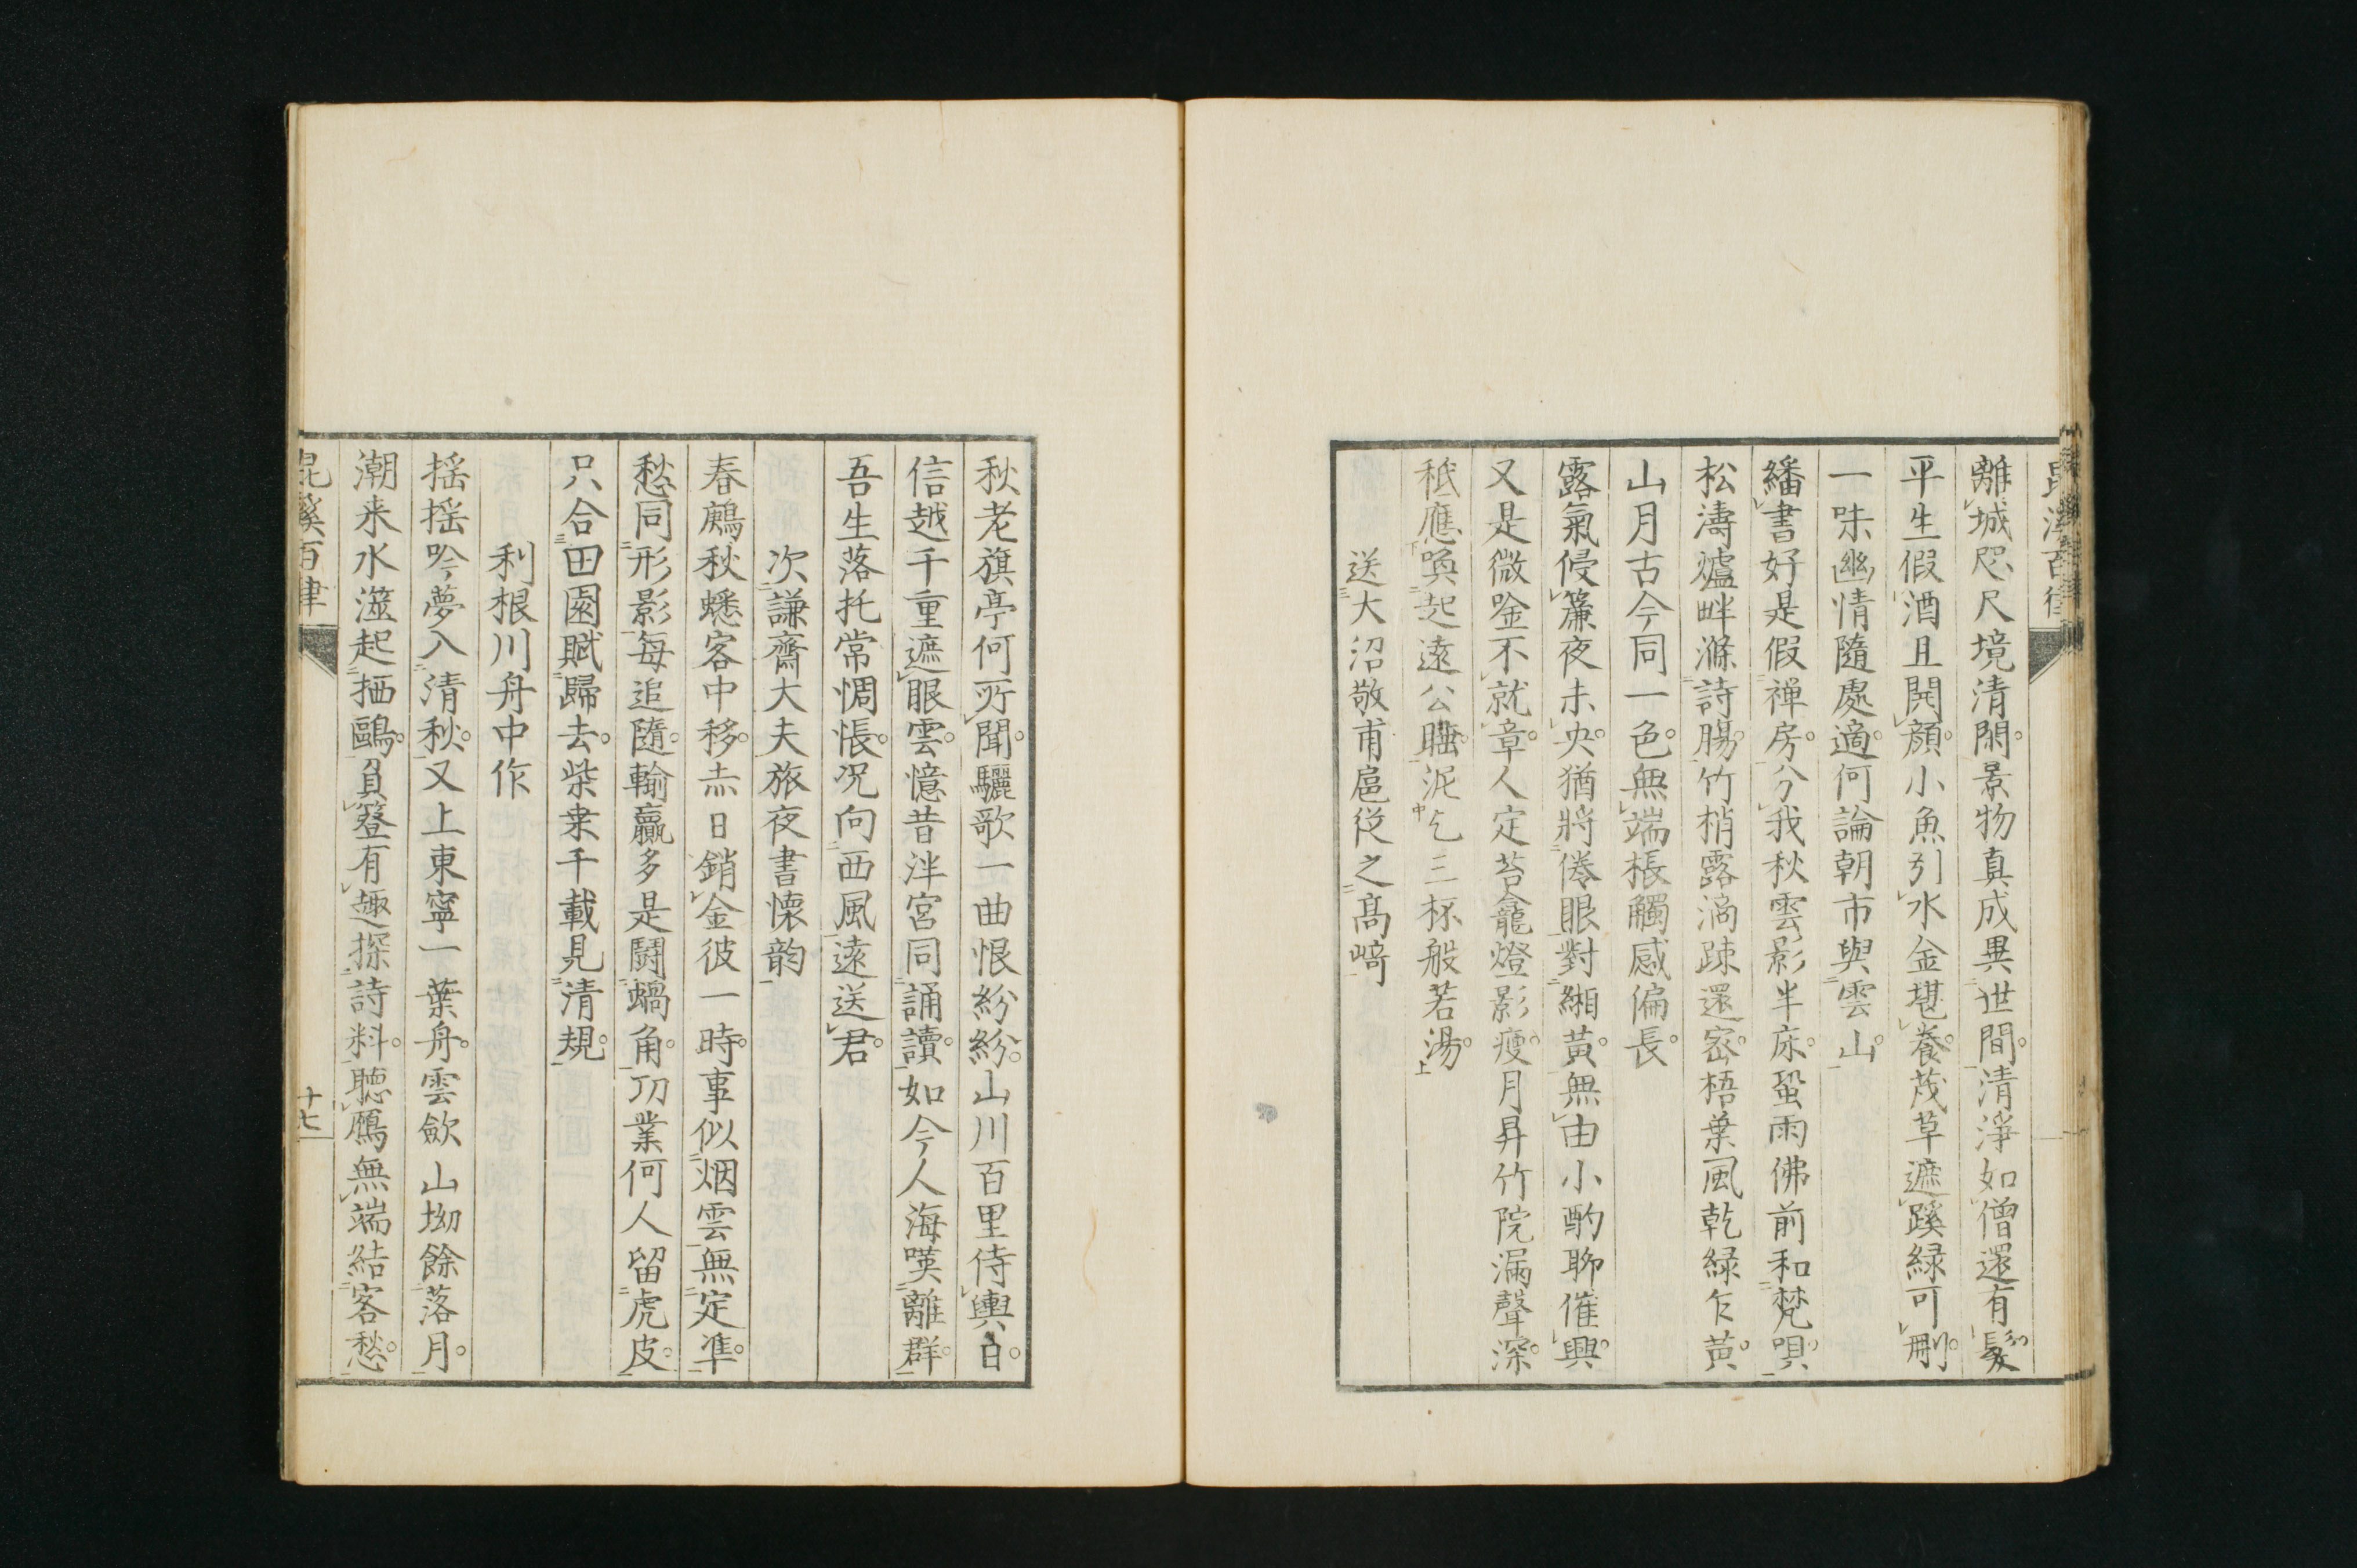 離城咫尺境清閑。景物真成異世間。清淨如僧還有髮
平生假酒且開顔。小魚引水金堪養。茂草遮蹊緑可刪。
一味幽情隨處適。何論朝市與雲山。
繙書好是假禪房。分我秋雲影半床。蛩雨佛前和梵唄。
松濤爐畔滌詩腸。竹梢露滴疎還密。梧葉風乾緑乍黄。
山月古今同一色。無端棖觸感偏長。
露氣侵簾夜未央。猶將倦眼對緗黄。無由小酌聊催興。
又是微唫不就章。人定苔龕燈影瘦。月昇竹院漏聲深。
秖應喚起遠公睡。泥乞三杯般若湯。
送大沼敬甫扈從之高﨑
秋老旗亭何所聞。驪歌一曲恨紛紛。山川百里侍輿日。
信越千重遮眼雲。憶昔泮宮同誦讀。如今人海嘆離群。
吾生落托常惆悵。况向西風遠送君。
次謙齋大夫旅夜書懷韵
春鷓秋蟋客中移。赤日銷金彼一時。事似烟雲無定準。
愁同形影每追隨。輸贏多是鬪蝸角。功業何人留虎皮。
只合田園賦歸去。柴桑千載見清規。
利根川舟中作
揺揺吟夢入清秋。又上東寧一葉舟。雲歛山坳餘落月。
潮来水澨起栖鷗。負簦有趣探詩料。聴鴈無端結客愁。
昆溪百律
十七